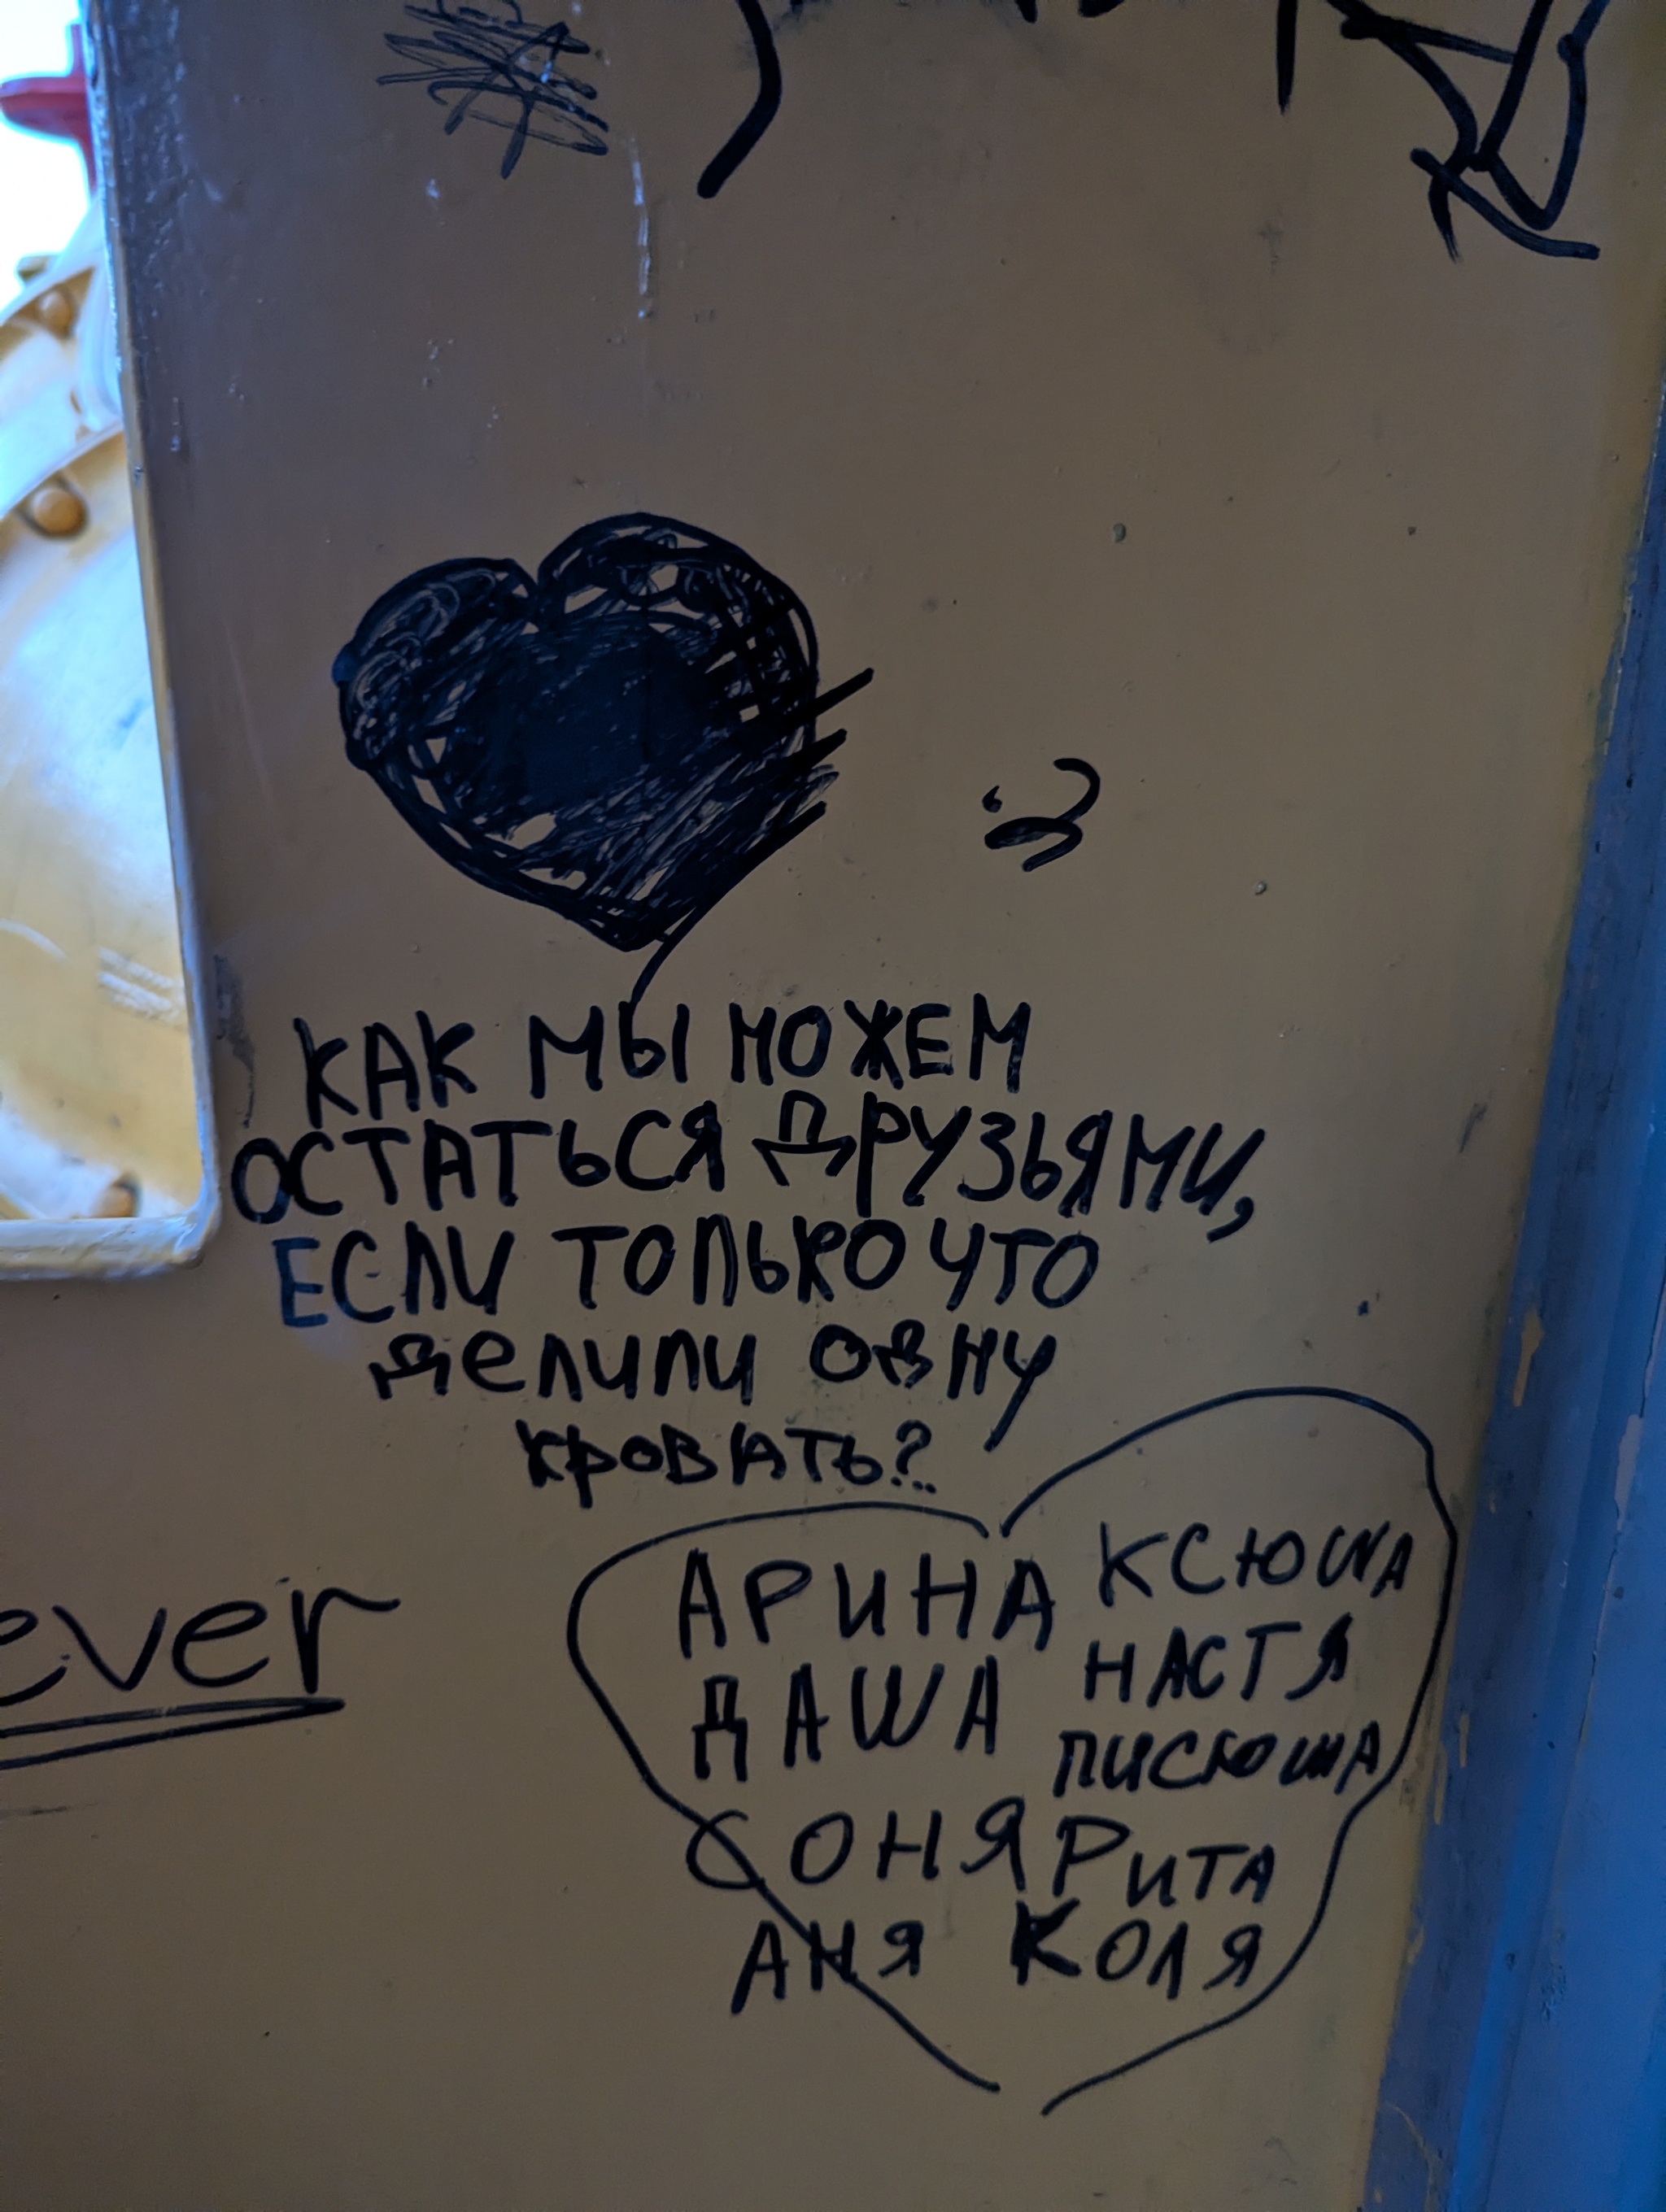 КАК МЫ МОЖЕМ
ОСТАТЬСЯ ДРУЗЬЯМИ,
ЕСЛИ ТОЛЬКО ЧТО
делили одну
кровать?..
ever
АРИНА КСЮША
ДАША НАСТЯ
ПИСЮША
СОНЯ РИТА
АНЯ КОЛЯ